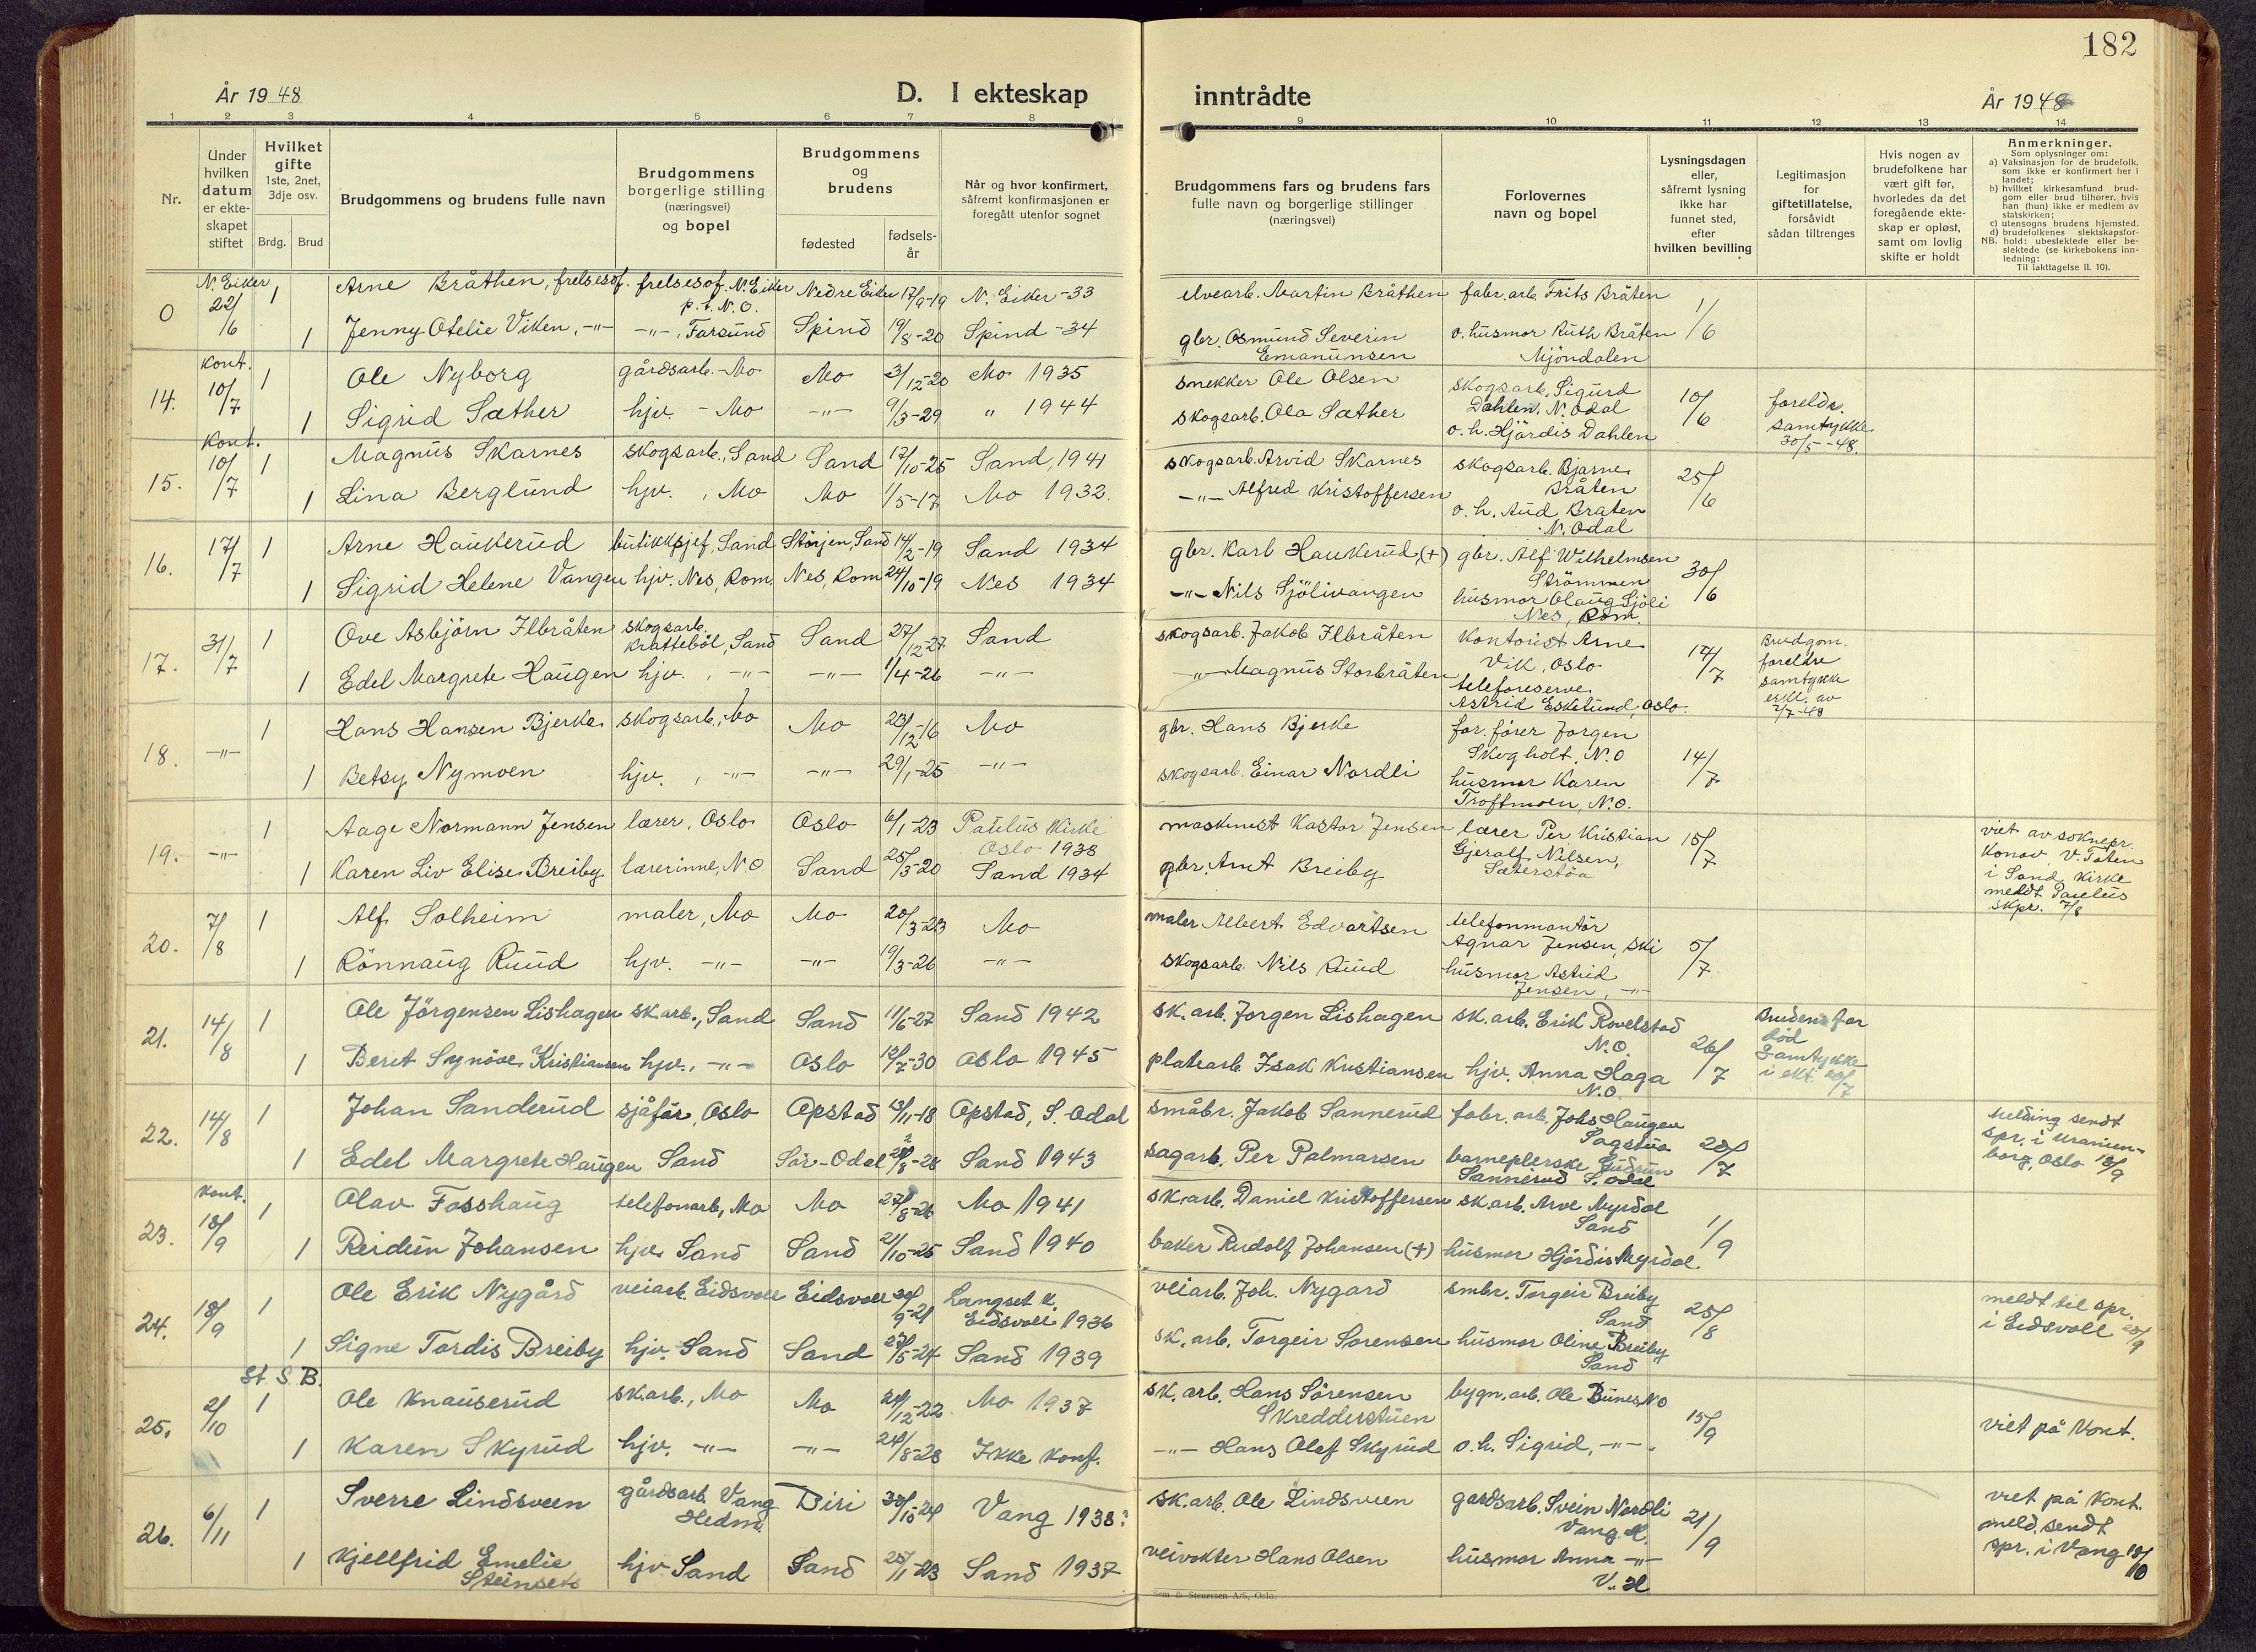 182
År 1948
D. I ekteskap
inntrådte
År 1948
1 2 3 4 5 6 7 8 9 10 11 12 13 14
Nr.
Under
hvilken
datum
er ekte-
skapet
stiftet
Hvilket
gifte
1ste, 2net,
3dje osv.
Brdg. Brud
Brudgommens og brudens fulle navn
Brudgommens
borgerlige stilling
(næringsvei)
og bopel
Brudgommens
og
brudens
fødested
fødsels-
år
Når og hvor konfirmert,
såfremt konfirmasjonen er
foregått utenfor sognet
Brudgommens fars og brudens fars
fulle navn og borgerlige stillinger
(næringsvei)
Forlovernes
navn og bopel
Lysningsdagen
eller,
såfremt lysning
ikke har
funnet sted,
efter
hvilken bevilling
Legitimasjon
for
giftetillatelse,
forsåvidt
sådan tiltrenges
Hvis nogen av
brudefolkene har
vært gift før,
hvorledes da det
foregående ekte-
skap er opløst,
samt om lovlig
skifte er holdt
Anmerkninger.
Som oplysninger om:
a) Vaksinasjon for de brudefolk,
som ikke er konfirmert her i
landet;
b) hvilket kirkesamfund brud-
gom eller brud tilhører, hvis
han (hun) ikke er medlem av
statskirken;
c) utensogns brudens hjemsted.
d) brudefolkenes slektskapsfor-
NB. hold: ubeslektede eller be-
slektede (se kirkebokens inn-
ledning:
Til iakttagelse II. 10).
0 N. Eiker 22/6 1 Arne Bråthen, frelsesof. frelsesof. N. Eiker p.t. N.O. Nedre Eiker 17/9-19 N. Eiker -33 elvearb. Martin Bråthen fabr. arb. Frits Bråten 1/6
1 Jenny Otelie Viken, -"- -"-, Farsund Spind 19/8-20 Spind -34 gbr. Osmund Severin Emanunsen o. husmor Ruth Bråten Mjöndalen
14. Kont. 10/7 1 Ole Nyborg gårdsarb. - Mo Mo 3/12-20 Mo 1935 snekker Ole Olsen skogsarb. Sigurd Dahlen, N. Odal 10/6 foreldr. samtykke 30/5 -48.
1 Sigrid Sæther hjv. - Mo -"- 9/3-29 " 1944 skogsarb. Ola Sæther o. h. Hjördis Dahlen
15. Kont. 10/7 1 Magnus Skarnes skogsarb., Sand Sand 17/10-25 Sand, 1941 skogsarb. Arvid Skarnes skogsarb. Bjarne Bråten 25/6
1 Lina Berglund hjv. , Mo Mo 1/5-17 Mo 1932. -"- Alfred Kristoffersen o. h. Aud Bråten N. Odal
16. 17/7 1 Arne Haukerud butikksjef, Sand Störjen, Sand 14/2-19 Sand 1934 gbr. Karl Haukerud, (+) gbr. Alf Wilhelmsen Strömmen 30/6
1 Sigrid Helene Vangen hjv. Nes, Rom. Nes, Rom 24/10-19 Nes 1934 -"- Nils Sjölivangen husmor Olaug Sjöli Nes, Rom.
17. 31/7 1 Ove Asbjörn Ilbråten skogsarb. Kratteböl, Sand Sand 27/12-27 Sand skogsarb. Jakob Ilbråten Kontorist Arne Vik, Oslo 14/7 Brudgom. foreldre samtykke erkl. av 2/7-48
1 Edel Margrete Haugen hjv. , -"- -"- 1/4-26 -"- -"- Magnus Storbråten telefonserve. Astrid Eskelund, Oslo.
18. -"- 1 Hans Hansen Bjerke skogsarb., Mo Mo 23/12-16 Mo gbr. Hans Bjerke for. fører Jorgen Skogholt, N.O 14/7
1 Betsy Nymoen hjv. , -"- -"- 29/1-25 -"- skogsarb. Einar Nordli husmor Karen Troftmoen, N.O.
19. -"- 1 Aage Normann Jensen lærer, Oslo Oslo 6/1-23 Paulus Kirke Oslo 1938 maskinist Kastor Jensen lærer Per Kristian Gjeralf Nilsen, Sæterstöa 15/7 viet av soknepr. Konow, V. Toten i Sand Kirke meldt Paulus skpr. 7/8
1 Karen Liv Elise Breiby lærerinne, N.O Sand 25/3-20 Sand 1934 gbr. Arnt Breiby
20. 7/8 1 Alf Solheim maler, Mo Mo 20/3-23 Mo maler Albert Edvartsen telefonmontör Agnar Jensen, Ski 5/7
1 Rönnaug Ruud hjv. -"- -"- 19/3-26 -"- skogsarb. Nils Ruud husmor Astrid Jensen, -"-
21. 14/8 1 Ole Jörgensen Lishagen sk.arb., Sand Sand 11/6-27 Sand 1942 sk. arb. Jorgen Lishagen sk. arb. Erik Rovelstad N.O. 26/7 Brudens far död Samtykke i ekt. 20/7
1 Beret Synöve Kristiansen hjv., -"- Oslo 12/7-30 Oslo 1945 platearb. Isak Kristiansen hjv. Anna Haga N.O.
22. 14/8 1 Johan Sanderud sjåför, Oslo Opstad 13/11-18 Opstad, S. Odal småbr. Jakob Sannerud fabr. arb. Johs Haugen Sagstua 20/7 Melding sendt spr. i Uranien- borg, Oslo 18/9
1 Edel Margrete Haugen Sand Sör-Odal 8-28 Sand 1943 sagarb. Per Palmarsen barnepleierske Gudrun Sannerud S. Odal
23. Kont. 18/9 1 Olav Fosshaug telefonarb., Mo Mo 27/8-26 Mo 1941 sk. arb. Daniel Kristoffersen sk. arb. Arve Myrdal Sand 1/9
1 Reidun Johansen hjv. Sand Sand 21/10-25 Sand 1940 baker Rudolf Johansen (+) husmor Hjördis Myrdal.
24. 18/9 1 Ole Erik Nygård veiarb. Eidsvoll Eidsvoll 9-21 Langset k. Eidsvoll 1936 veiarb. Joh. Nygard smbr. Torgeir Breiby Sand 25/8 meldt til spr. i Eidsvoll 20/9
1 Signe Tordis Breiby hjv. Sand Sand 27/5-24 Sand 1939 sk. arb. Torgeir Sorensen husmor Oline Breiby Sand
St. S. B.
25. 2/10 1 Ole Knauserud sk.arb., Mo Mo 24/12-22 Mo 1937 sk. arb. Hans Sörensen Skredderstuen bygn. arb. Ole Bunes N.O 15/9 viet på Kont.
1 Karen Skyrud hjv. -"- -"- 24/8-28 Ikke Konf. -"- Hans Olaf Skyrud o. h. Sigrid, -"-
26. 6/11 1 Sverre Lindsveen gårdsarb. Vang Hedm. Biri 30/10-24 Vang 1938? sk. arb. Ole Lindsveen gardsarb. Svein Nordli Vang H. 21/9 viet på Kont. meld. sendt spr. i Vang 18/10
1 Kjellfrid Emelie Steinseth hjv. Sand Sand 25/1-23 Sand 1937 veivokter Hans Olsen husmor Anna -"- V. H
Sem & Stenersen A/S, Oslo.